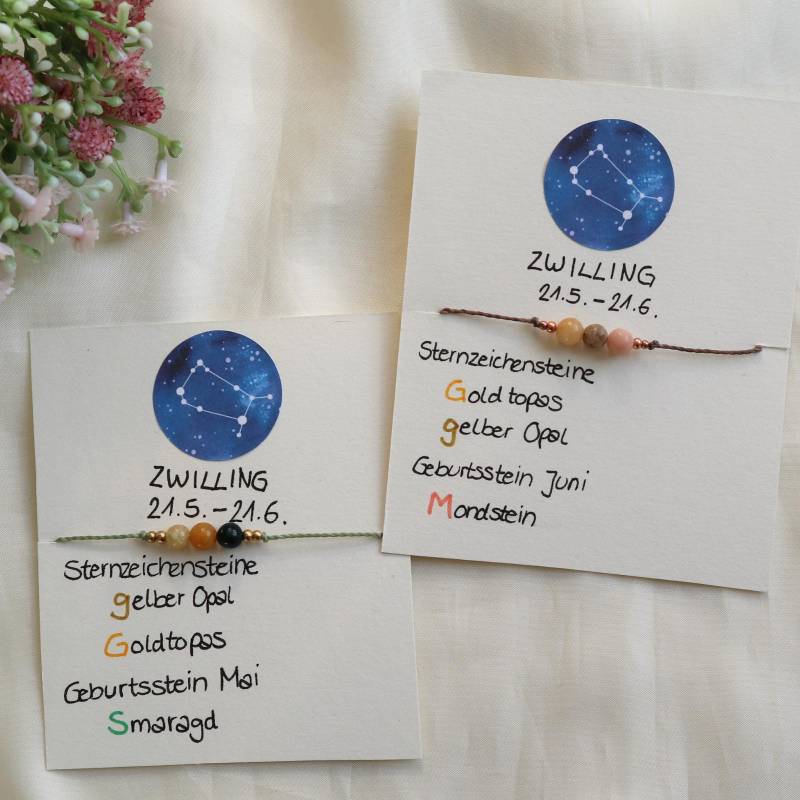 ZWILLING
21.5.-21.6.
Sternzeichensteine
gelber Opal
Goldtopas
Geburtsstein Mai
Smaragd
ZWILLING
21.5.-21.6.
Sternzeichensteine
Goldtopas
gelber Opal
Geburtsstein Juni
Mondstein